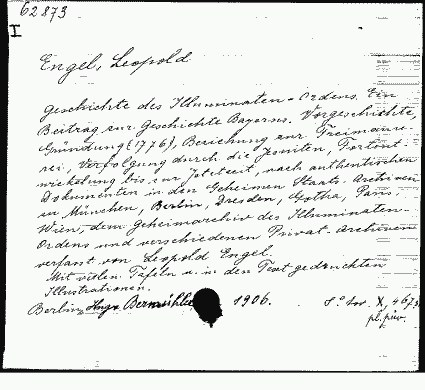 62873
I
Engel, Leopold
Geschichte des Illuminaten-Ordens. Ein
Beitrag zur Geschichte Bayerns. Vorgeschichte,
Gründung (1776), Beziehung zur Freimaure-
rei, Verfolgung durch die Jesuiten, Fortent-
wickelung bis zur Jetztzeit, nach authentischen
Dokumenten in den Geheimen Staats-Archiven
zu München, Berlin, Dresden, Gotha, Paris,
Wien, dem Geheimarchiv des Illuminaten-
Ordens und verschiedenen Privat-Archiven
verfasst von Leopold Engel.
Mit vielen Tafeln u. in den Text gedruckten
Illustrationen.
Berlin, Hugo Bermühler 1906. 8° X, 467 S.